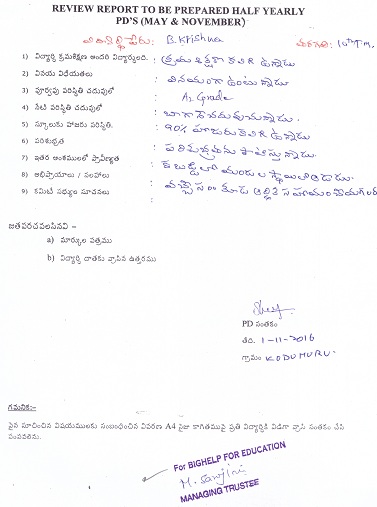 REVIEW REPORT TO BE PREPARED HALF YEARLY
PD'S (MAY & NOVEMBER)
విద్యార్థి పేరు: B. Krishna తరగతి: 10th T.M.
1) విద్యార్థి క్రమశిక్షణ అందరి విద్యార్థులలో. : క్రమశిక్షణ కలిగి ఉన్నాడు
2) వినయ విధేయతలు : వినయంగా ఉంటున్నాడు
3) పూర్వపు పరిస్థితి చదువులో : A2 Grade
4) నేటి పరిస్థితి చదువులో : బాగా చదువుచున్నాడు.
5) స్కూలుకు హాజరు పరిస్థితి. : 90% హాజరు కలిగి ఉన్నాడు
6) పరిశుభ్రత : పరిశుభ్రతను పాటిస్తున్నాడు.
7) ఇతర అంశములలో ప్రావీణ్యత : కబడ్డీలో
8) అభిప్రాయాలు / సలహాలు :
9) కమిటి సభ్యుల సూచనలు :
జతపరచవలసినవి –
a) మార్కుల పత్రము
b) విద్యార్థి దాతకు వ్రాసిన ఉత్తరము
PD సంతకం
తేది: 1-11-2016
గ్రామం: KODUMURU.
గమనిక:-
పైన సూచించిన విషయములకు సంబంధించిన వివరణ A4 సైజు కాగితముపై ప్రతి విద్యార్థికి విడిగా వ్రాసి సంతకం చేసి
పంపవలెను.
For BIGHELP FOR EDUCATION
M. Sanjini
MANAGING TRUSTEE